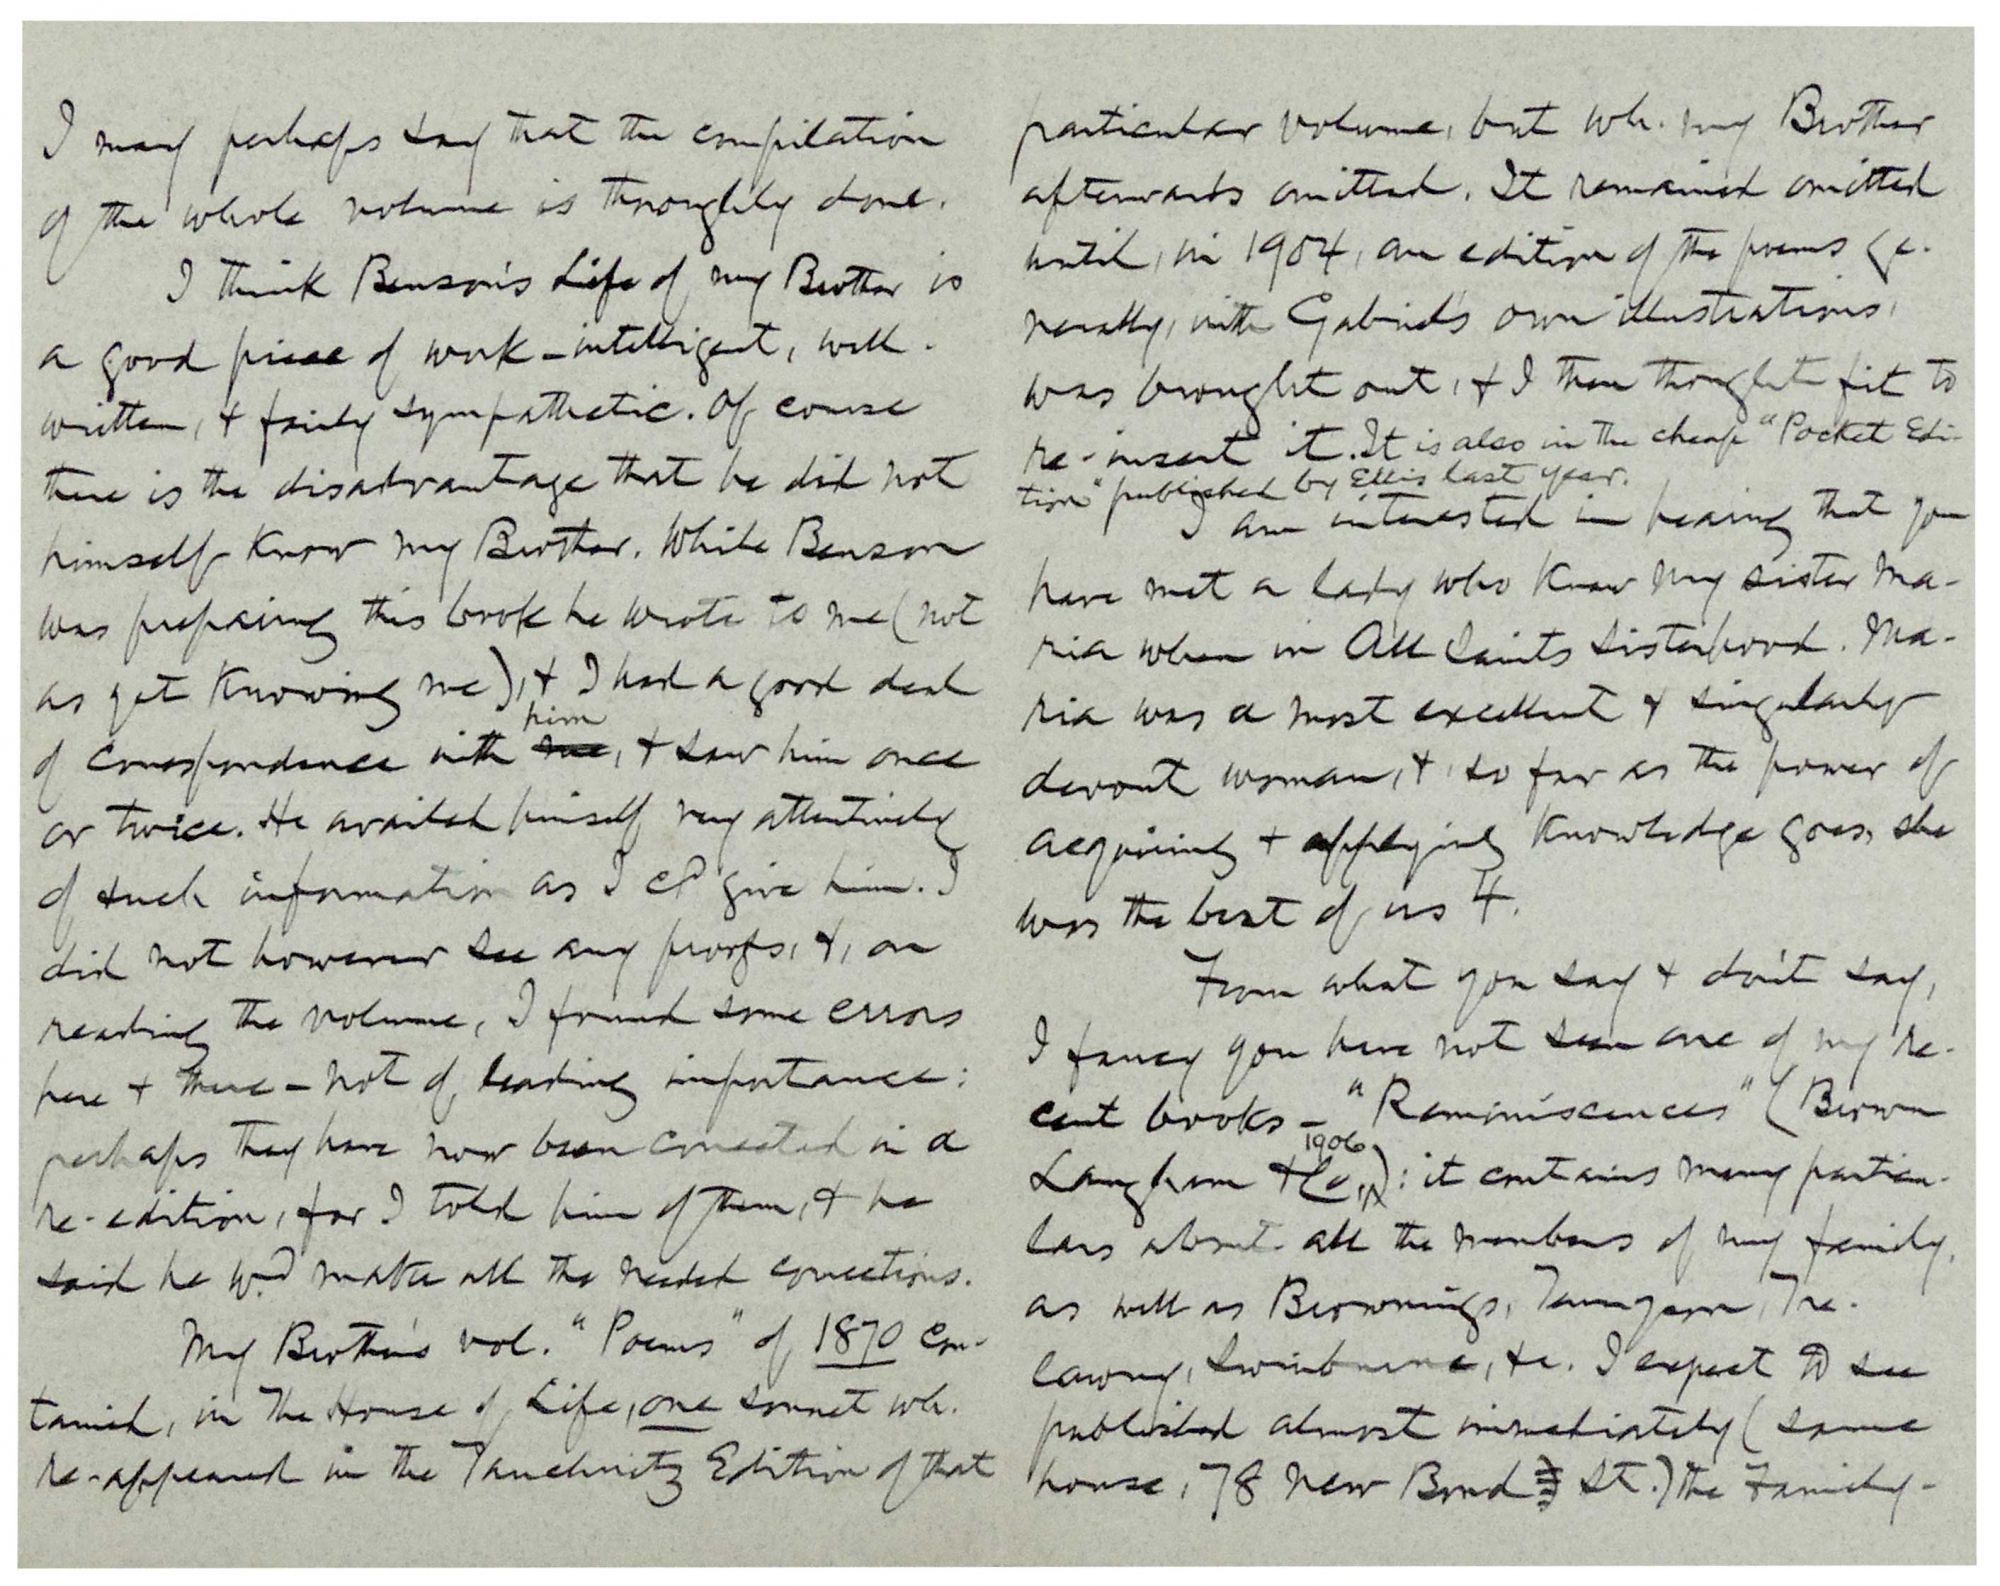 I may perhaps say that the compilation
of the whole volume is thoroughly done.
I think Benson's Life of my Brother is
a good piece of work – intelligent, well-
written, & fairly sympathetic. Of course
there is the disadvantage that he did not
himself know my Brother. While Benson
was preparing this book he wrote to me (not
as yet knowing me), & I had a good deal
of correspondence with him, & saw him once
or twice. He availed himself very attentively
of such information as I cd give him. I
did not however see any proofs, &, on
reading the volume, I found some errors
here & there – not of leading importance:
perhaps they have now been corrected in a
re-edition, for I told him of them, & he
said he wd make all the needed corrections.
My Brother's vol. "Poems" of 1870 con-
tained, in The House of Life, one sonnet wh.
re-appeared in the Tauchnitz Edition of that
particular volume, but wh. my Brother
afterwards omitted. It remained omitted
until, in 1904, an edition of the poems ge-
nerally, with Gabriel's own illustrations,
was brought out, & I then thought fit to
re-insert it. It is also in the cheap "Pocket Edi-
tion" published by Ellis last year.
I am interested in hearing that you
have met a lady who knew my sister Ma-
ria when in All Saints Sisterhood. Ma-
ria was a most excellent & singularly
devout woman, &, so far as the power of
acquiring & applying knowledge goes, she
was the best of us 4.
From what you say & don't say,
I fancy you have not seen one of my re-
cent books – "Reminiscences" (Brown
Langham & Co., 1906): it contains many particu-
lars about all the members of my family,
as well as Brownings, Tennyson, Tre-
lawny, Swinburne, &c. I expect to see
published almost immediately (same
house, 78 New Bond St.) the Family-